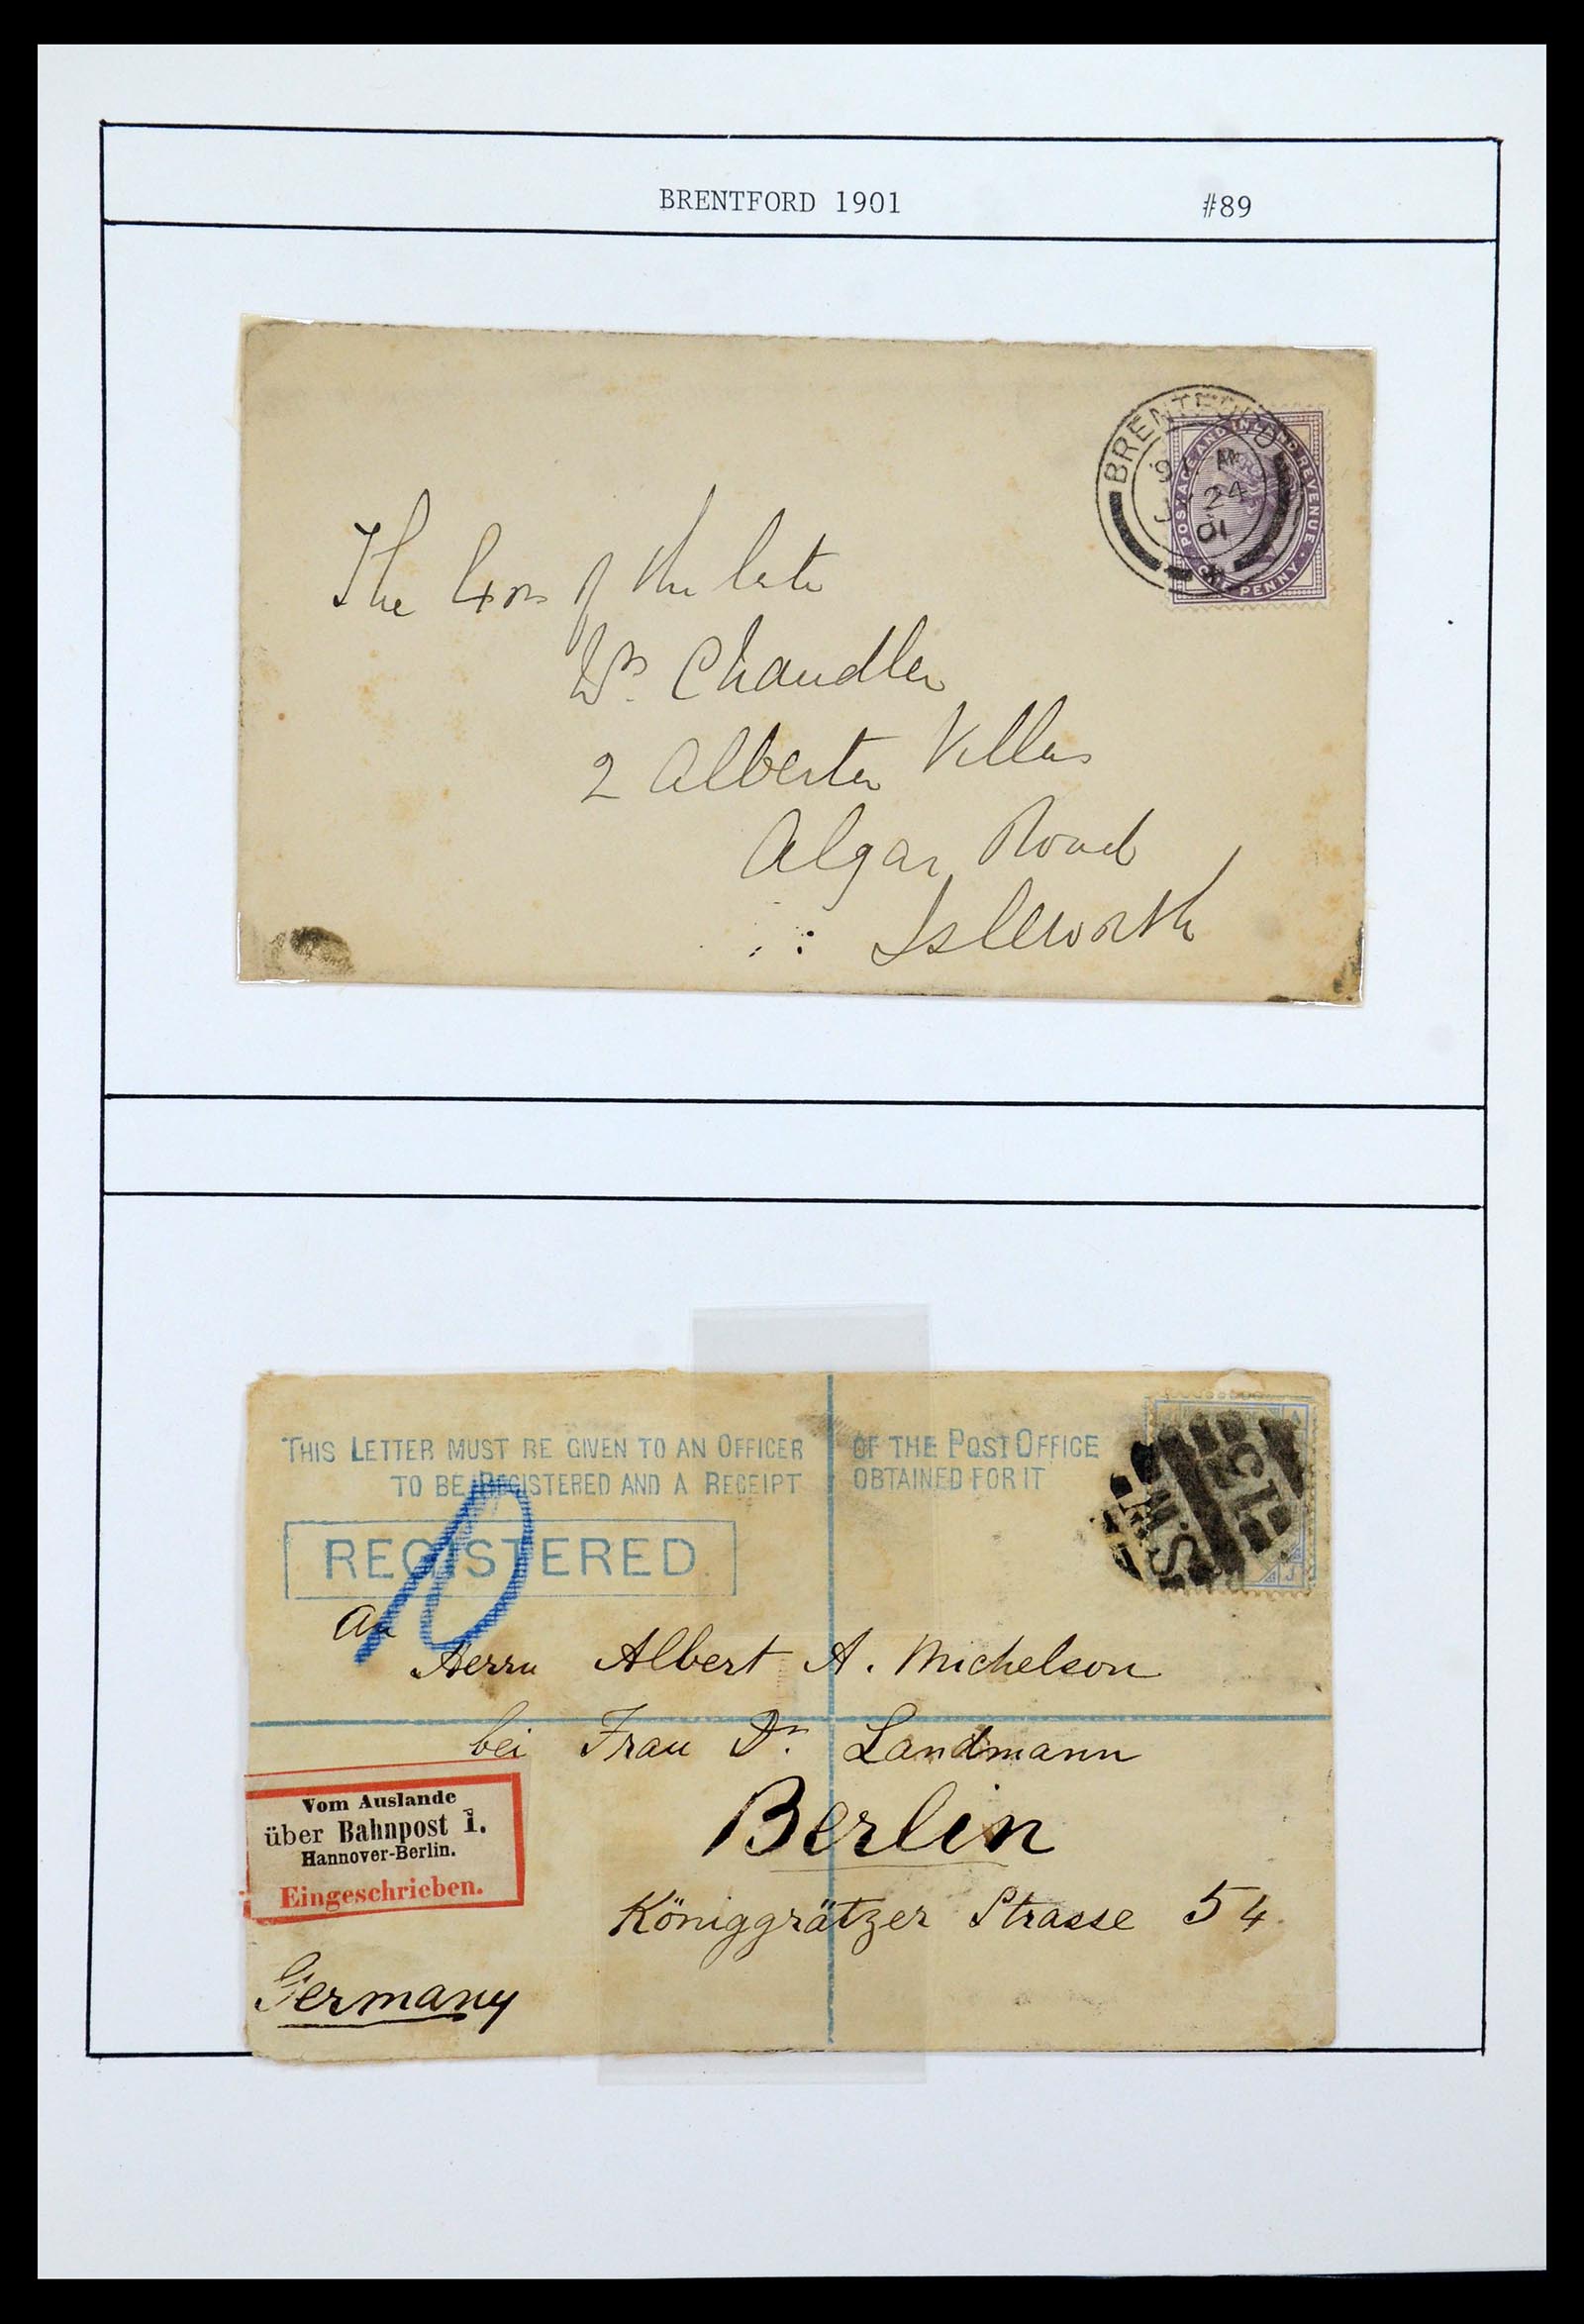 BRENTFORD 1901 #89
BRENTFORD
24
01
POSTAGE AND INLAND REVENUE
PENNY
The Exrs of the late
Dr. Chandler
2 Alberta Villas
Algar Road
Isleworth
THIS LETTER MUST BE GIVEN TO AN OFFICER OF THE POST OFFICE
TO BE REGISTERED AND A RECEIPT OBTAINED FOR IT
REGISTERED
An
Herrn Albert A. Michelson
bei Frau Dr. Landmann
Berlin
Königgrätzer Strasse 54.
Vom Auslande
über Bahnpost 1.
Hannover-Berlin.
Eingeschrieben.
Germany